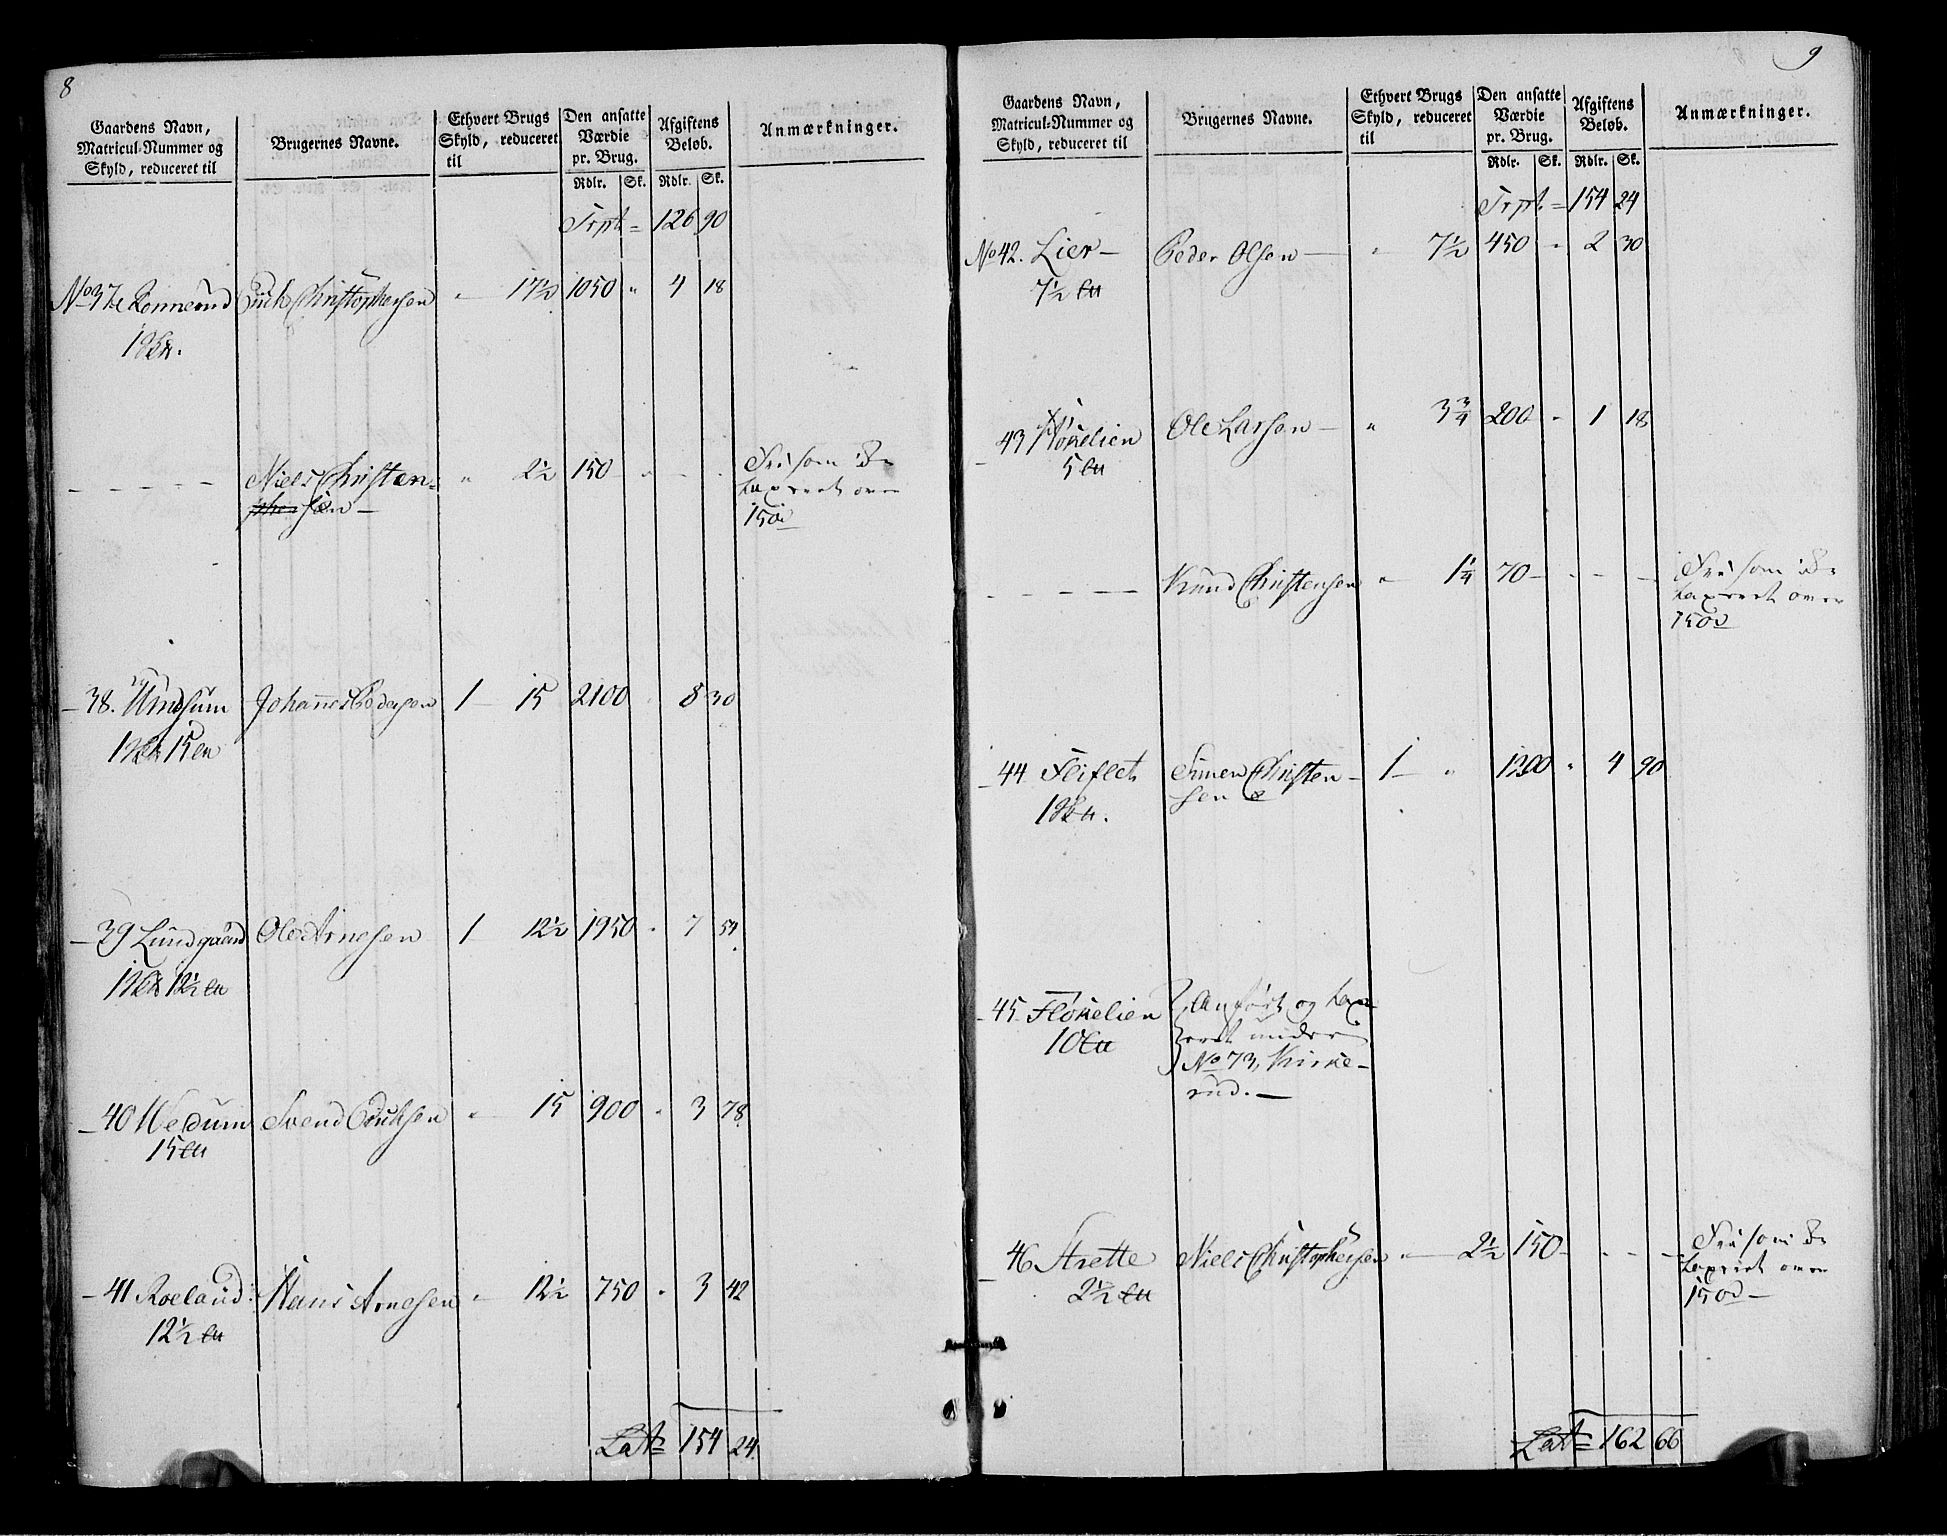 8
Gaardens Navn,
Matricul-Nummer og
Skyld, reduceret til
Brugernes Navne.
Ethvert Brugs
Skyld, reduceret
til
Den ansatte
Værdie
pr. Brug.
Rdlr. Sk.
Afgiftens
Beløb.
Rdlr. Sk.
Anmærkninger.
Trpt = 126 90
No 37 Christophersen " 17½ 1050 " 4 18
Niels Christen= " 2½ 150 " - - Fri som
sen - taxeret over
150
38. Johannes Pedersen 1 15 2100 " 8 30
39 Lundgaard Ole Arnesen 1 12½ 1950 " 7 54
40 Hedum Svend " 15 900 " 3 78
15
41 Roeland Hans Arnesen " 12½ 750 " 3 42
12½
Lat= 154 24
9
Gaardens Navn,
Matricul-Nummer og
Skyld, reduceret til
Brugernes Navne.
Ethvert Brugs
Skyld, reduceret
til
Den ansatte
Værdie
pr. Brug.
Rdlr. Sk.
Afgiftens
Beløb.
Rdlr. Sk.
Anmærkninger.
Trpt = 154 24
No 42. Lier - Peder Olsen - " 7½ 450 " 2 30
7½
43 Ole Larsen - " 3¾ 200 - 1 18
5
Knud Christensen " 1¼ 70 - - - Fri som
taxeret over
150
44 Simen Christen - 1 - " 1200 " 4 90
sen
45 Fløkelien Anført og tax
10 eret under
No 73, Kirke-
rud. -
46 Strette Niels Christophersen " 2½ 150 - - - Fri som
2½ taxeret over
150 -
Lat= 162 66